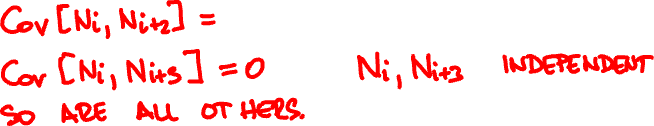 Cov [Ni, Ni+2] =
Cov [Ni, Ni+3] = 0 Ni, Ni+3 INDEPENDENT
SO ARE ALL OTHERS.